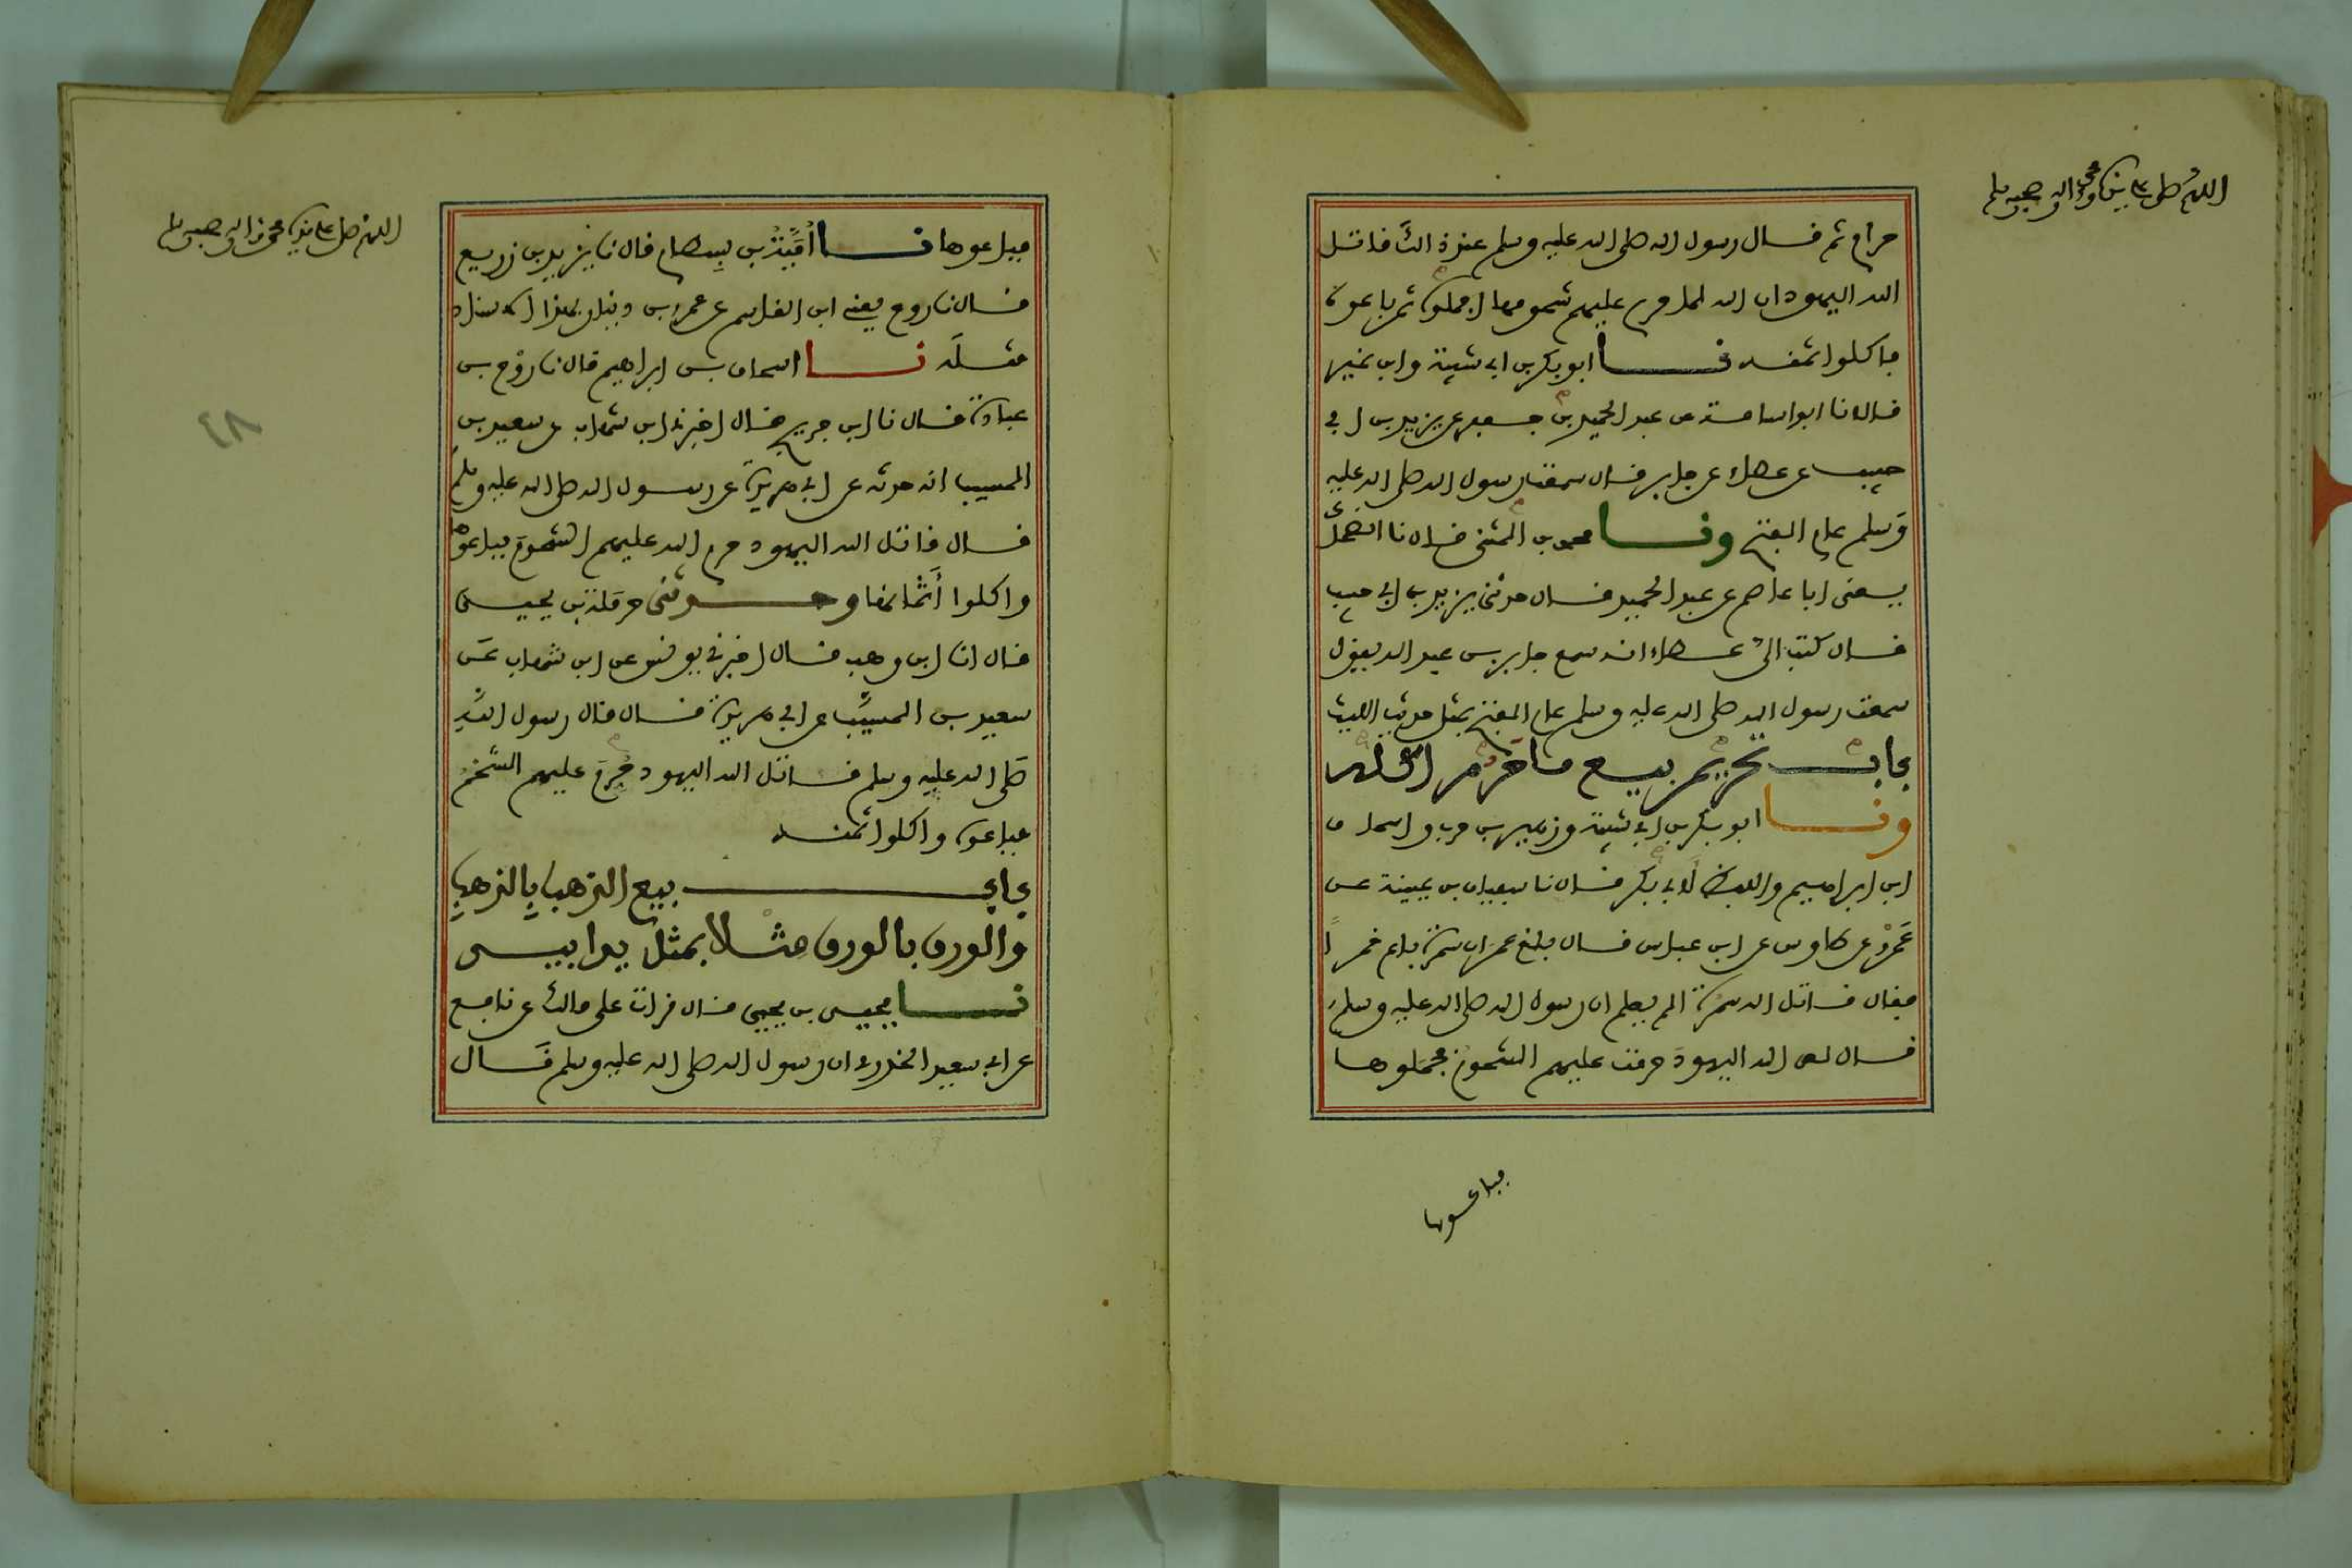 اللهم صل على نبينا محمد واله وصحبه وسلم
حرام ثم قال رسول الله صلى الله عليه وسلم عند ذلك قاتل
الله اليهود ان الله لما حرم عليهم شحومها اجملوه ثم باعوه
فاكلوا ثمنه نا ابو بكر بن ابي شيبة وابن نمير
قالا نا ابو اسامة عن عبد الحميد بن جعفر عن يزيد بن ابي
حبيب عن عطاء عن جابر قال سمعت رسول الله صلى الله عليه
وسلم عام الفتح ونا محمد بن المثنى قال نا الضحاك
يعني ابا عاصم عن عبد الحميد قال حدثني يزيد بن ابي حبيب
قال كتب الي عطاء انه سمع جابر بن عبد الله يقول
سمعت رسول الله صلى الله عليه وسلم عام الفتح بمثل حديث الليث
باب تحريم بيع ما حرم اكله
ونا ابو بكر بن ابي شيبة وزهير بن حرب واسحاق
ابن ابراهيم واللفظ لابي بكر قال نا سفيان بن عيينة عن
عمرو عن طاوس عن ابن عباس قال بلغ عمر ان سمرة باع خمرا
فقال قاتل الله سمرة الم يعلم ان رسول الله صلى الله عليه وسلم
قال لعن الله اليهود حرمت عليهم الشحوم فجملوها
فباعوها
اللهم صل على نبينا محمد واله وصحبه وسلم
فباعوها نا امية بن بسطام قال نا يزيد بن زريع
قال نا روح يعني ابن القاسم عن عمرو بن دينار بهذا الاسناد
مثله نا اسحاق بن ابراهيم قال نا روح بن
عبادة قال نا ابن جريج قال اخبرني ابن شهاب عن سعيد بن
المسيب انه حدثه عن ابي هريرة عن رسول الله صلى الله عليه وسلم
قال قاتل الله اليهود حرم الله عليهم الشحوم فباعوها
واكلوا أثمانها وحدثني حرملة بن يحيى
قال انا ابن وهب قال اخبرني يونس عن ابن شهاب عن
سعيد بن المسيب عن ابي هريرة قال قال رسول الله
صلى الله عليه وسلم قاتل الله اليهود حرم عليهم الشحم
فباعوه واكلوا ثمنه
باب بيع الذهب بالذهب
والورق بالورق مثلا بمثل يدا بيد
نا يحيى بن يحيى قال قرات على مالك عن نافع
عن ابي سعيد الخدري ان رسول الله صلى الله عليه وسلم قال
٤٨